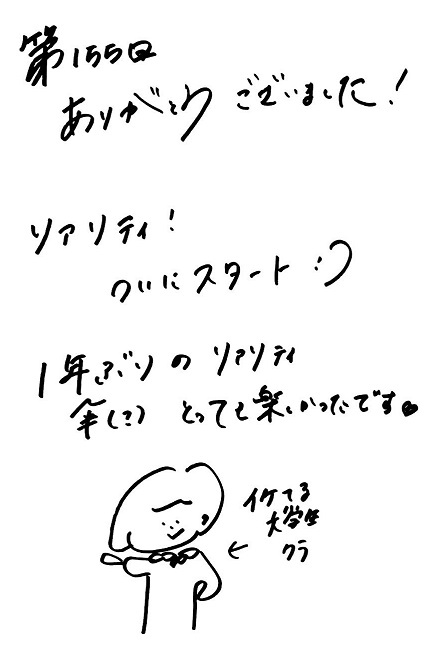 第155回
ありがとう ございました!
リアリティ!
ついにスタート :)
1年ぶりの リアリティ
(?) とっても楽しかったです
イケてる
大学生
クラ